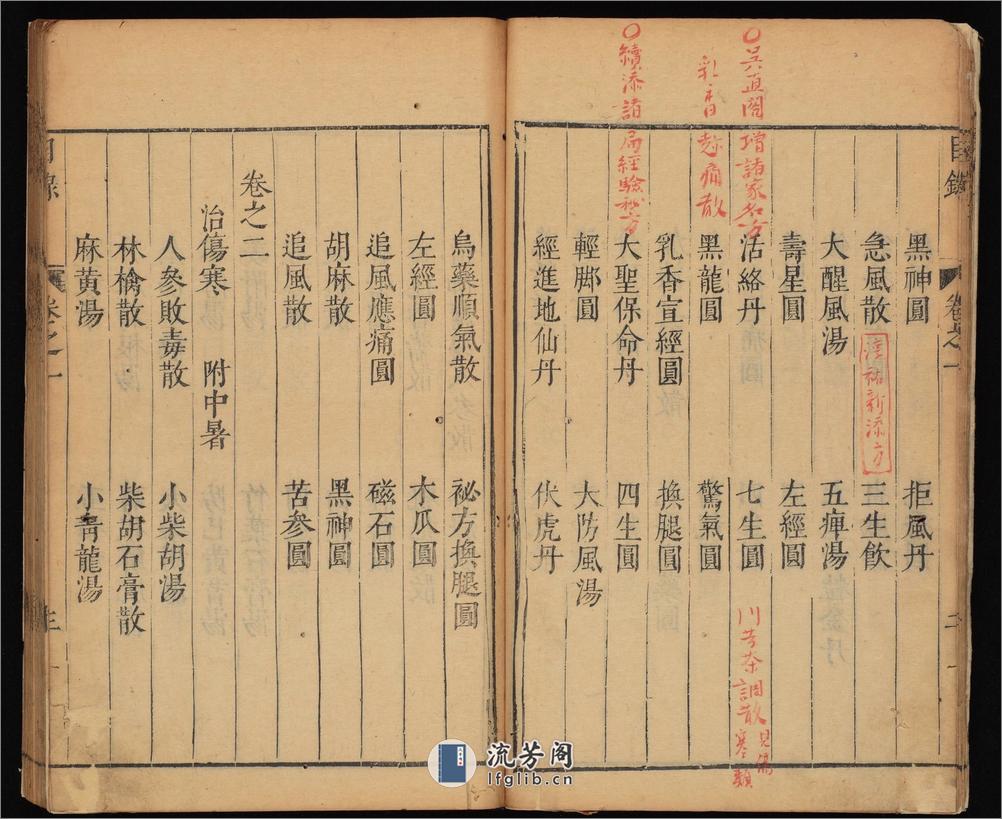 目錄 卷之一
黑神圓 拒風丹
急風散 淳祐新添方 三生飲
大醒風湯 五痺湯
壽星圓 左經圓
○吳直閣增諸家名方
活絡丹 七生圓 川芎茶調散 見傷寒類
乳香趁痛散
黑龍圓 驚氣圓
乳香宣經圓 換腿圓
○續添諸局經驗秘方
大聖保命丹 四生圓
輕腳圓 大防風湯
經進地仙丹 伏虎丹
烏藥順氣散 祕方換腿圓
左經圓 木瓜圓
追風應痛圓 磁石圓
胡麻散 黑神圓
追風散 苦參圓
卷之二
治傷寒 附中暑
人參敗毒散 小柴胡湯
林檎散 柴胡石膏散
麻黃湯 小青龍湯
目錄 卷之一
流芳阁
lfglib.cn